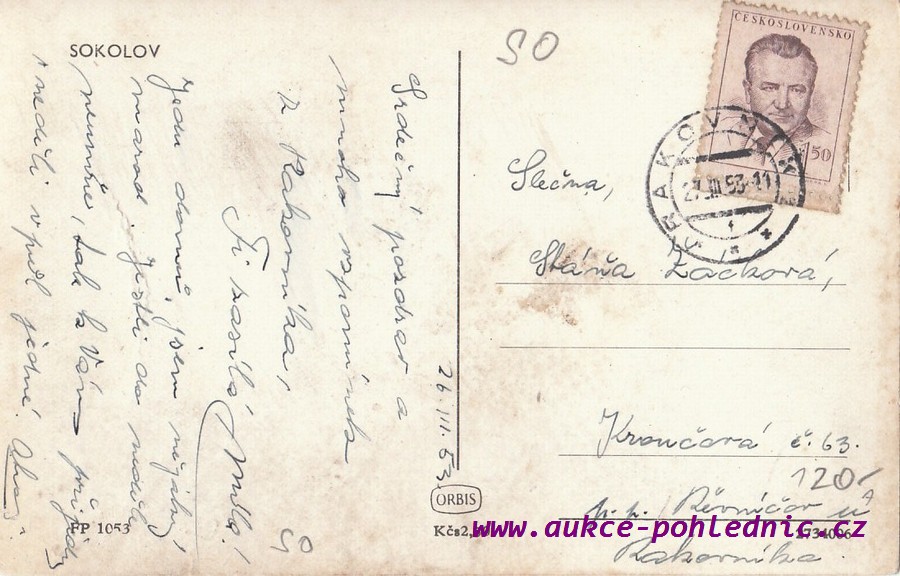 SOKOLOV
Srdečný pozdrav a
mnoho vzpomínek
z Rakovníka,
Ti zasílá
Jedu domů, jsem
marod. Jestli do neděle
neumře, tak k Vám přijedu
v neděli v půl jedné. Ahoj
26.III.53
90
FP 1053
ORBIS
Kčs2,
90
ČESKOSLOVENSKO
1,50
RAKOVNÍK
27.III.53-11
Slečna,
Stáňa Žáčková,
Kroučová č. 63.
120,-
p. p. Řevničov u
Rakovníka.
2734006
www.aukce-pohlednic.cz